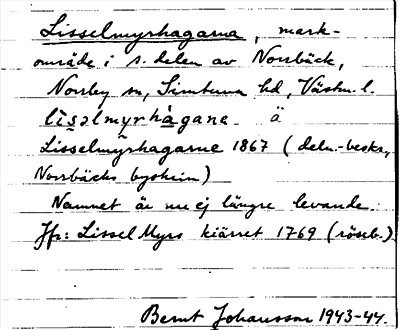 Lisselmyrhagarna, mark-
område i s. delen av Norrbäck,
Norrby sn, Simtuna hd, Västm. l.
lisəlmyrhagane. ä
Lisselmyrhagarne 1867 (deln.-beskr.,
Norrbäcks byskrin)
Namnet är nu ej längre levande.
Jfr: Lissel Myrs kiärret 1769 (röseb.)
Bernt Johansson 1943-44.